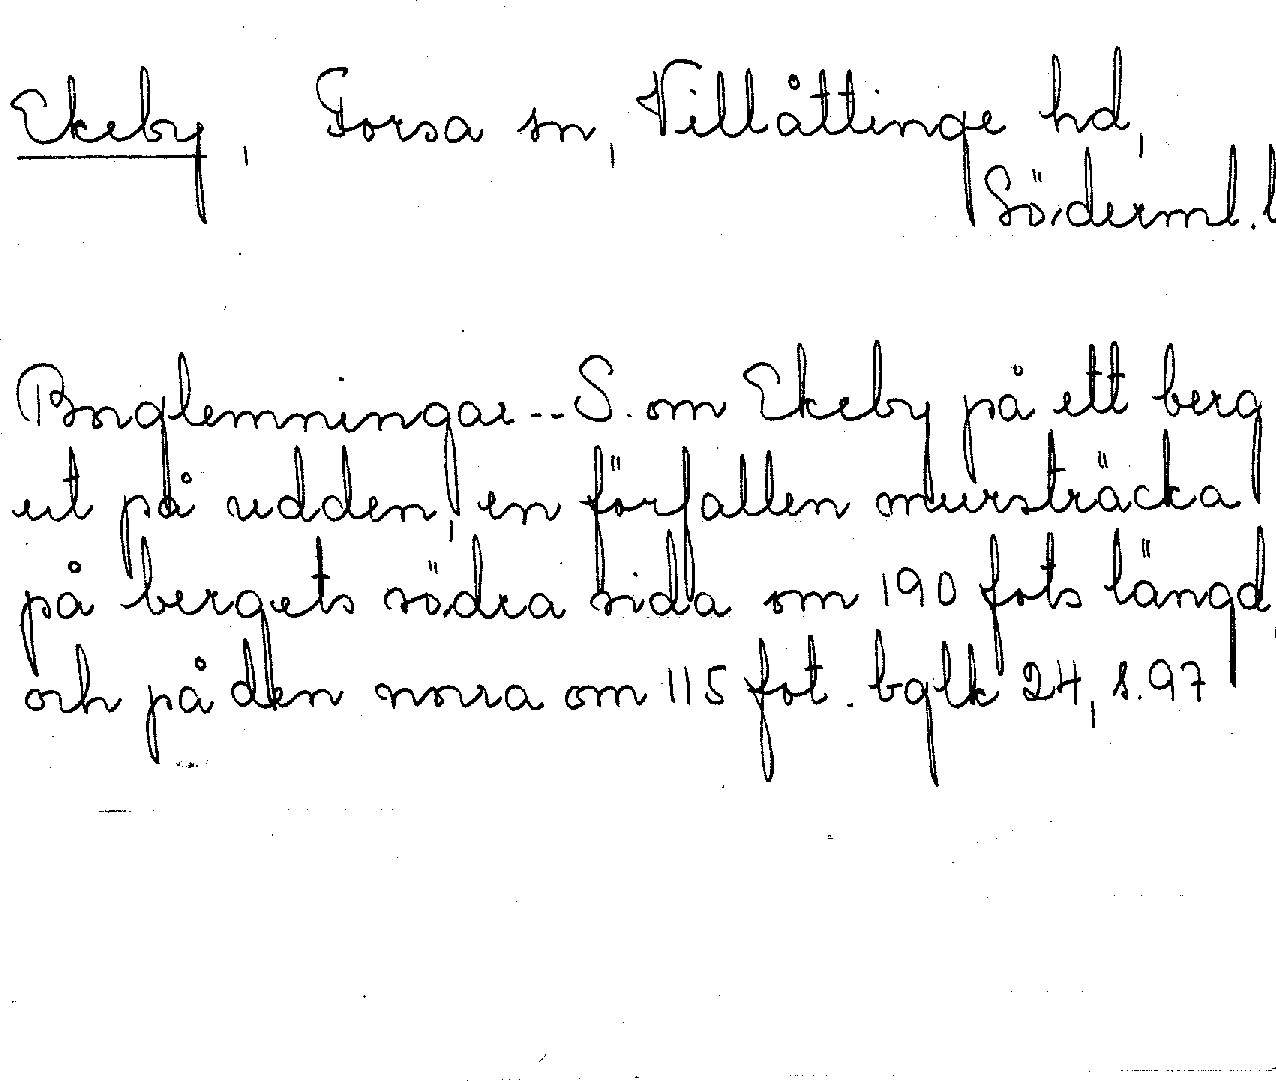 Ekeby, Forsa sn, Villåttinge hd,
Söderml. l
Borglemningar -- S. om Ekeby på ett berg
ut på udden, en förfallen mursträcka
på bergets södra sida om 190 fots längd,
och på den norra om 115 fot. bglk 24, s. 97